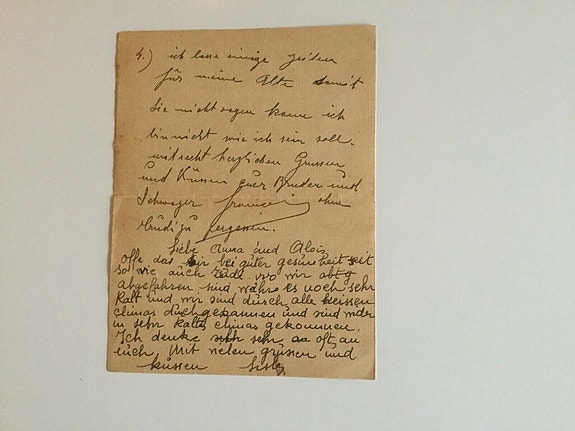 4.) ich lasse einige Zeilen
für meine Alte damit
Sie nicht sagen kann ich
bin nicht wie ich sein soll.
mit recht herzlichen Grussen
und Küssen euer Bruder und
Schwager ohne
zu vergessen.
Liebe Anna und Alois
offe das wir bei guter gesundheit seit
so wie auch Rudl. wo wir
abgefahren sind währe es noch sehr
kalt und wir sind dürch alle heissen
climas düchgegannen und sind wider
in sehr kaltes climas gekommen.
Ich denke sehr oft an
eüch. Mit vielen grüssen und
küssen